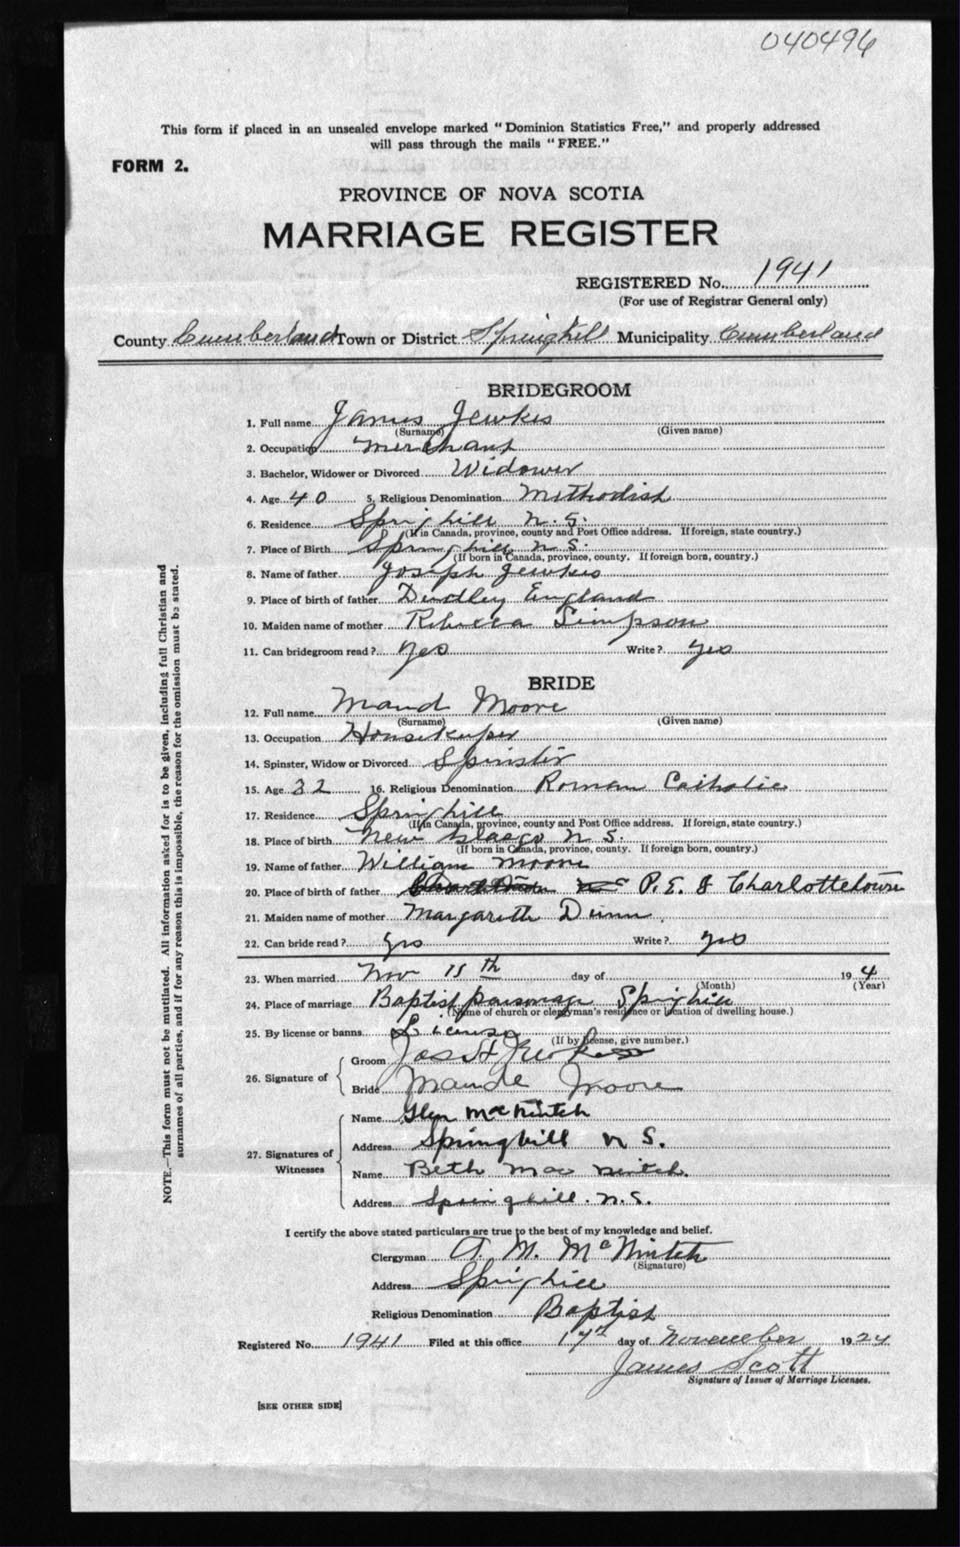 040496
This form if placed in an unsealed envelope marked "Dominion Statistics Free," and properly addressed
will pass through the mails "FREE."
FORM 2.
PROVINCE OF NOVA SCOTIA
MARRIAGE REGISTER
REGISTERED No. 1941
(For use of Registrar General only)
County Cumberland Town or District Springhill Municipality Cumberland
BRIDEGROOM
1. Full name James Jewkes
(Surname) (Given name)
2. Occupation Merchant
3. Bachelor, Widower or Divorced Widower
4. Age 40 5. Religious Denomination Methodist
6. Residence Springhill N.S.
(If in Canada, province, county and Post Office address. If foreign, state country.)
7. Place of Birth Springhill N.S.
(If born in Canada, province, county. If foreign born, country.)
8. Name of father Joseph Jewkes
9. Place of birth of father Dudley England
10. Maiden name of mother Rebecca Simpson
11. Can bridegroom read? Yes Write? Yes
BRIDE
12. Full name Maud Moore
(Surname) (Given name)
13. Occupation Housekeeper
14. Spinster, Widow or Divorced Spinster
15. Age 32 16. Religious Denomination Roman Catholic
17. Residence Springhill
(If in Canada, province, county and Post Office address. If foreign, state country.)
18. Place of birth New Glasgo N.S.
(If born in Canada, province, county. If foreign born, country.)
19. Name of father William Moore
20. Place of birth of father P.E.I Charlottetown
21. Maiden name of mother Margareth Dunn
22. Can bride read? Yes Write? Yes
23. When married Nov 15th day of 19 4
(Month) (Year)
24. Place of marriage Baptist parsonage Springhill
(Name of church or clergyman's residence or location of dwelling house.)
25. By license or banns License
(If by license, give number.)
26. Signature of
Groom Jas H Jewkes
Bride Maude Moore
27. Signatures of Witnesses
Name Glen MacNintch
Address Springhill N.S.
Name Beth MacNintch.
Address Springhill. N.S.
I certify the above stated particulars are true to the best of my knowledge and belief.
Clergyman A. M. McNintch
(Signature)
Address Springhill
Religious Denomination Baptist
Registered No. 1941 Filed at this office 17th day of November 1924
James Scott
Signature of Issuer of Marriage Licenses.
[SEE OTHER SIDE]
NOTE.—This form must not be mutilated. All information asked for is to be given, including full Christian and
surnames of all parties, and if for any reason this is impossible, the reason for the omission must be stated.